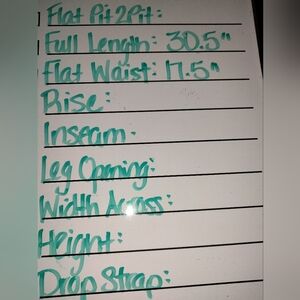 Flat Pit2Pit:
Full Length: 30.5"
Flat Waist: 17.5"
Rise:
Inseam:
Leg Opening:
Width Across:
Height:
Drop Strap: